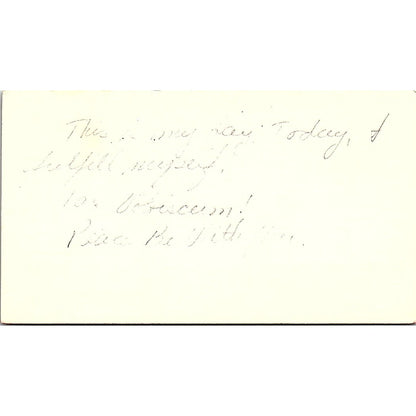 This is my day! Today, I
fulfill myself.
Pax Vobiscum!
Peace Be With You.